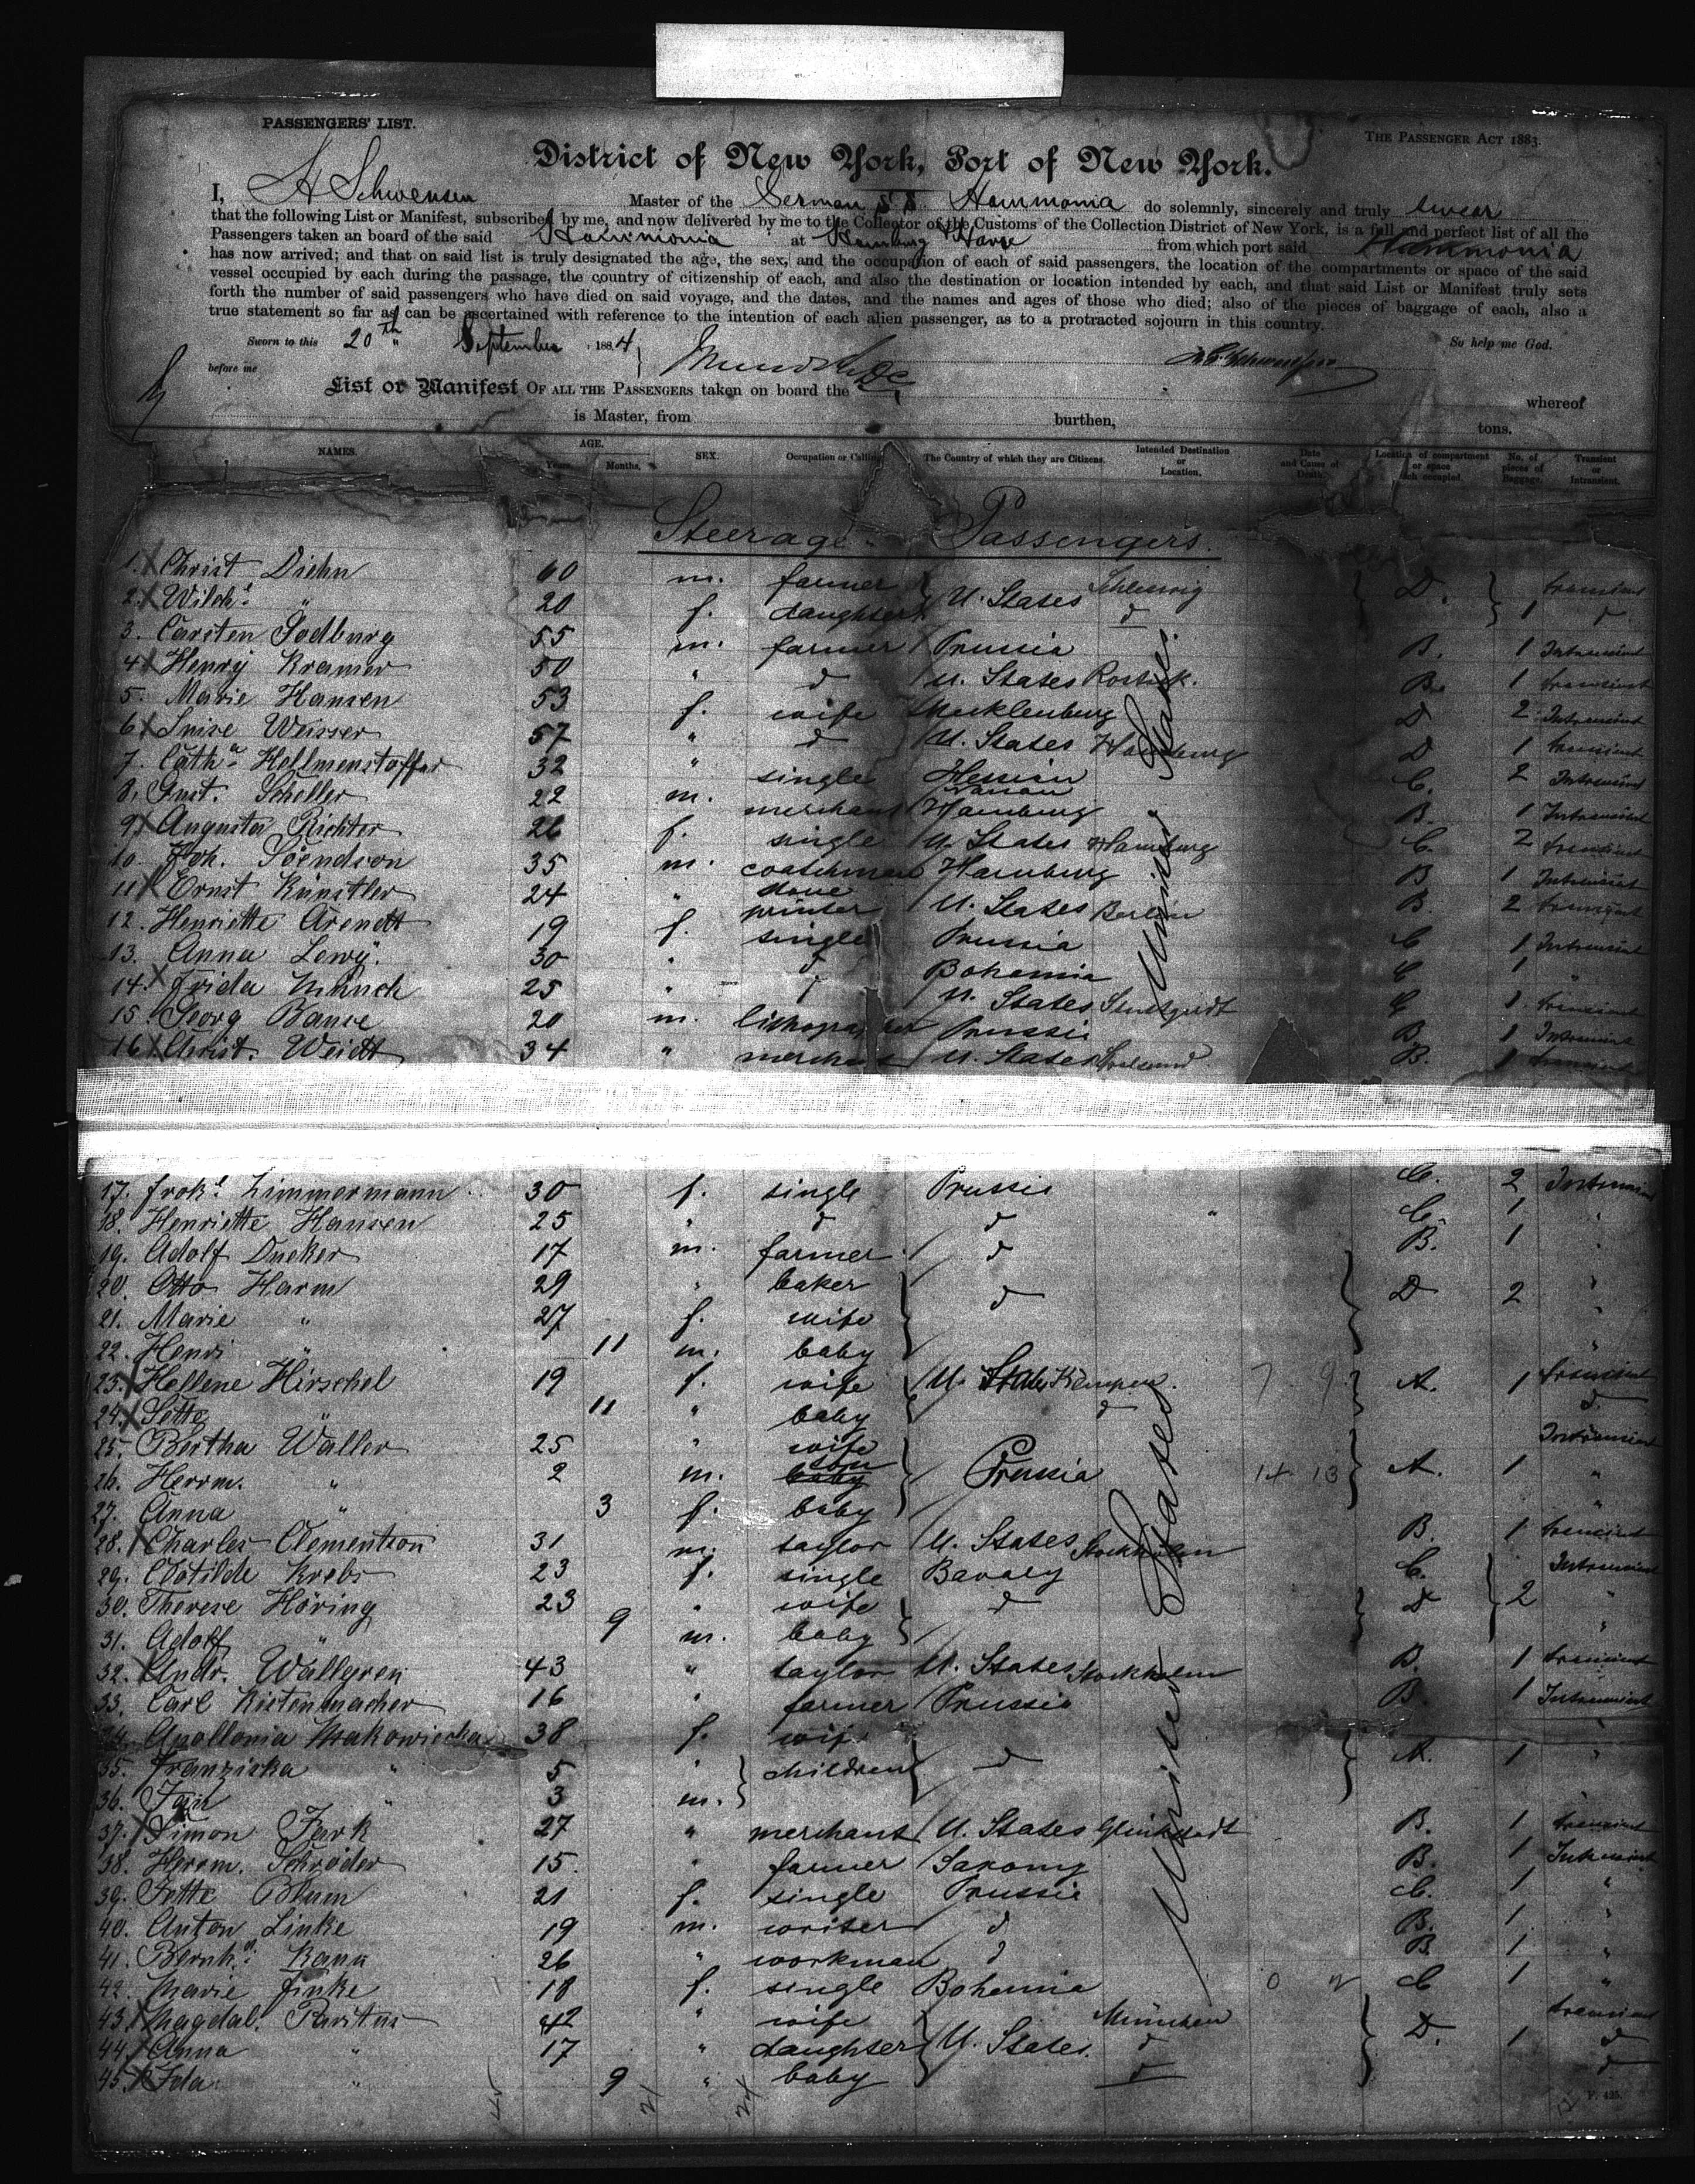 PASSENGERS' LIST.
THE PASSENGER ACT 1883.
District of New York, Port of New York.
I, A Schwensen Master of the German S.S. Hammonia do solemnly, sincerely and truly swear
that the following List or Manifest, subscribed by me, and now delivered by me to the Collector of the Customs of the Collection District of New York, is a full and perfect list of all the
Passengers taken an board of the said Hammonia at Hamburg Havre from which port said Hammonia
has now arrived; and that on said list is truly designated the age, the sex, and the occupation of each of said passengers, the location of the compartments or space of the said
vessel occupied by each during the passage, the country of citizenship of each, and also the destination or location intended by each, and that said List or Manifest truly sets
forth the number of said passengers who have died on said voyage, and the dates, and the names and ages of those who died; also of the pieces of baggage of each, also a
true statement so far as can be ascertained with reference to the intention of each alien passenger, as to a protracted sojourn in this country.
Sworn to this 20th September 1884 So help me God.
before me
List or Manifest OF ALL THE PASSENGERS taken on board the whereof
is Master, from burthen, tons.
NAMES. AGE. Years. Months. SEX. Occupation or Calling The Country of which they are Citizens. Intended Destination or Location. Date and Cause of Death. Location of compartment or space each occupied. No. of pieces of Baggage. Transient or Intransient.
Steerage Passengers.
1. X Christ Diehn 60 m. farmer U. States Schleswig D. transient
2. X " 20 f. daughter d 1 d
3. Carsten Todburg 55 m. farmer Prussia B. 1 Intransient
4. X Henry Kramer 50 " d U. States Rostock. B. 1 transient
5. Marie Hansen 53 f. wife Mecklenburg D 2 Intransient
6. X Luise Weisser 57 " d U. States Hamburg D 1 transient
7. Cath. 32 " single Hessian C. 2 Intransient
8. Gust. Scheller 22 m. merchant Hamburg B. 1 Intransient
9. X Augusta Richter 26 f. single U. States Hamburg C. 2 transient
10. Joh. 35 m. coatchman Hamburg B 1 Intransient
11. X Ernst Künstler 24 " stone printer U. States Berlin B. 2 transient
12. Henriette Arendt 19 f. single Prussia C 1 Intransient
13. Anna Lewy. 30 " d Bohemia C 1 "
14. X Frida Münch 25 " d U. States C 1 transient
15. Georg Banse 20 m. lithographer Prussia B. 1 Intransient
16. X Christ. Weidt 34 " merchant U. States B. 1 transient
17. Zimmermann 30 f. single Prussia C. 2 Intransient
18. Henriette Hansen 25 " d d C. 1 "
19. Adolf Ducker 17 m. farmer d B. 1 "
20. Otto Harm 29 " baker d D 2 "
21. Marie " 27 f. wife "
22. Henri " 11 m. baby "
23. X Hellene Hirschel 19 f. wife U. States Kempen. A. 1 transient
24. X Jette " 11 " baby d d.
25. Bertha Waller 25 " wife Intransient
26. Herrm. " 2 m. son Prussia 14 13 A. 1 "
27. Anna " 3 f. baby "
28. X Charles Clementson 31 m. taylor U. States Stockholm B. 1 transient
29. Clotilde Krebs 23 f. single Bavary C. Intransient
30. Therese Höring 23 " wife d D 2 "
31. Adolf " 9 m. baby "
32. X Andr. Wallgren 43 " taylor U. States Stockholm B. 1 transient
33. Carl Kistenmacher 16 " farmer Prussia B. 1 Intransient
34. Apollonia Makowiecka 38 f. wife "
35. Franziska " 5 " children d A. 1 "
36. " 3 m.
37. X Simon Fark 27 " merchant U. States Glückstadt B. 1 transient
38. Herrm. Schröder 15. " farmer Saxony B. 1 Intransient
39. Jette Blum 21 f. single Prussia C. 1 "
40. Anton Linke 19 m. writer d B. 1 "
41. Bernh. 26 " workman d B. 1 "
42. Marie Finke 18 f. single Bohemia C 1 "
43. X Magdal. 42 " wife München transient
44. X Anna " 17 " daughter U. States. d D. 1 d
45. X Ida " 9 " baby d d
United States.
United States
F. 425.